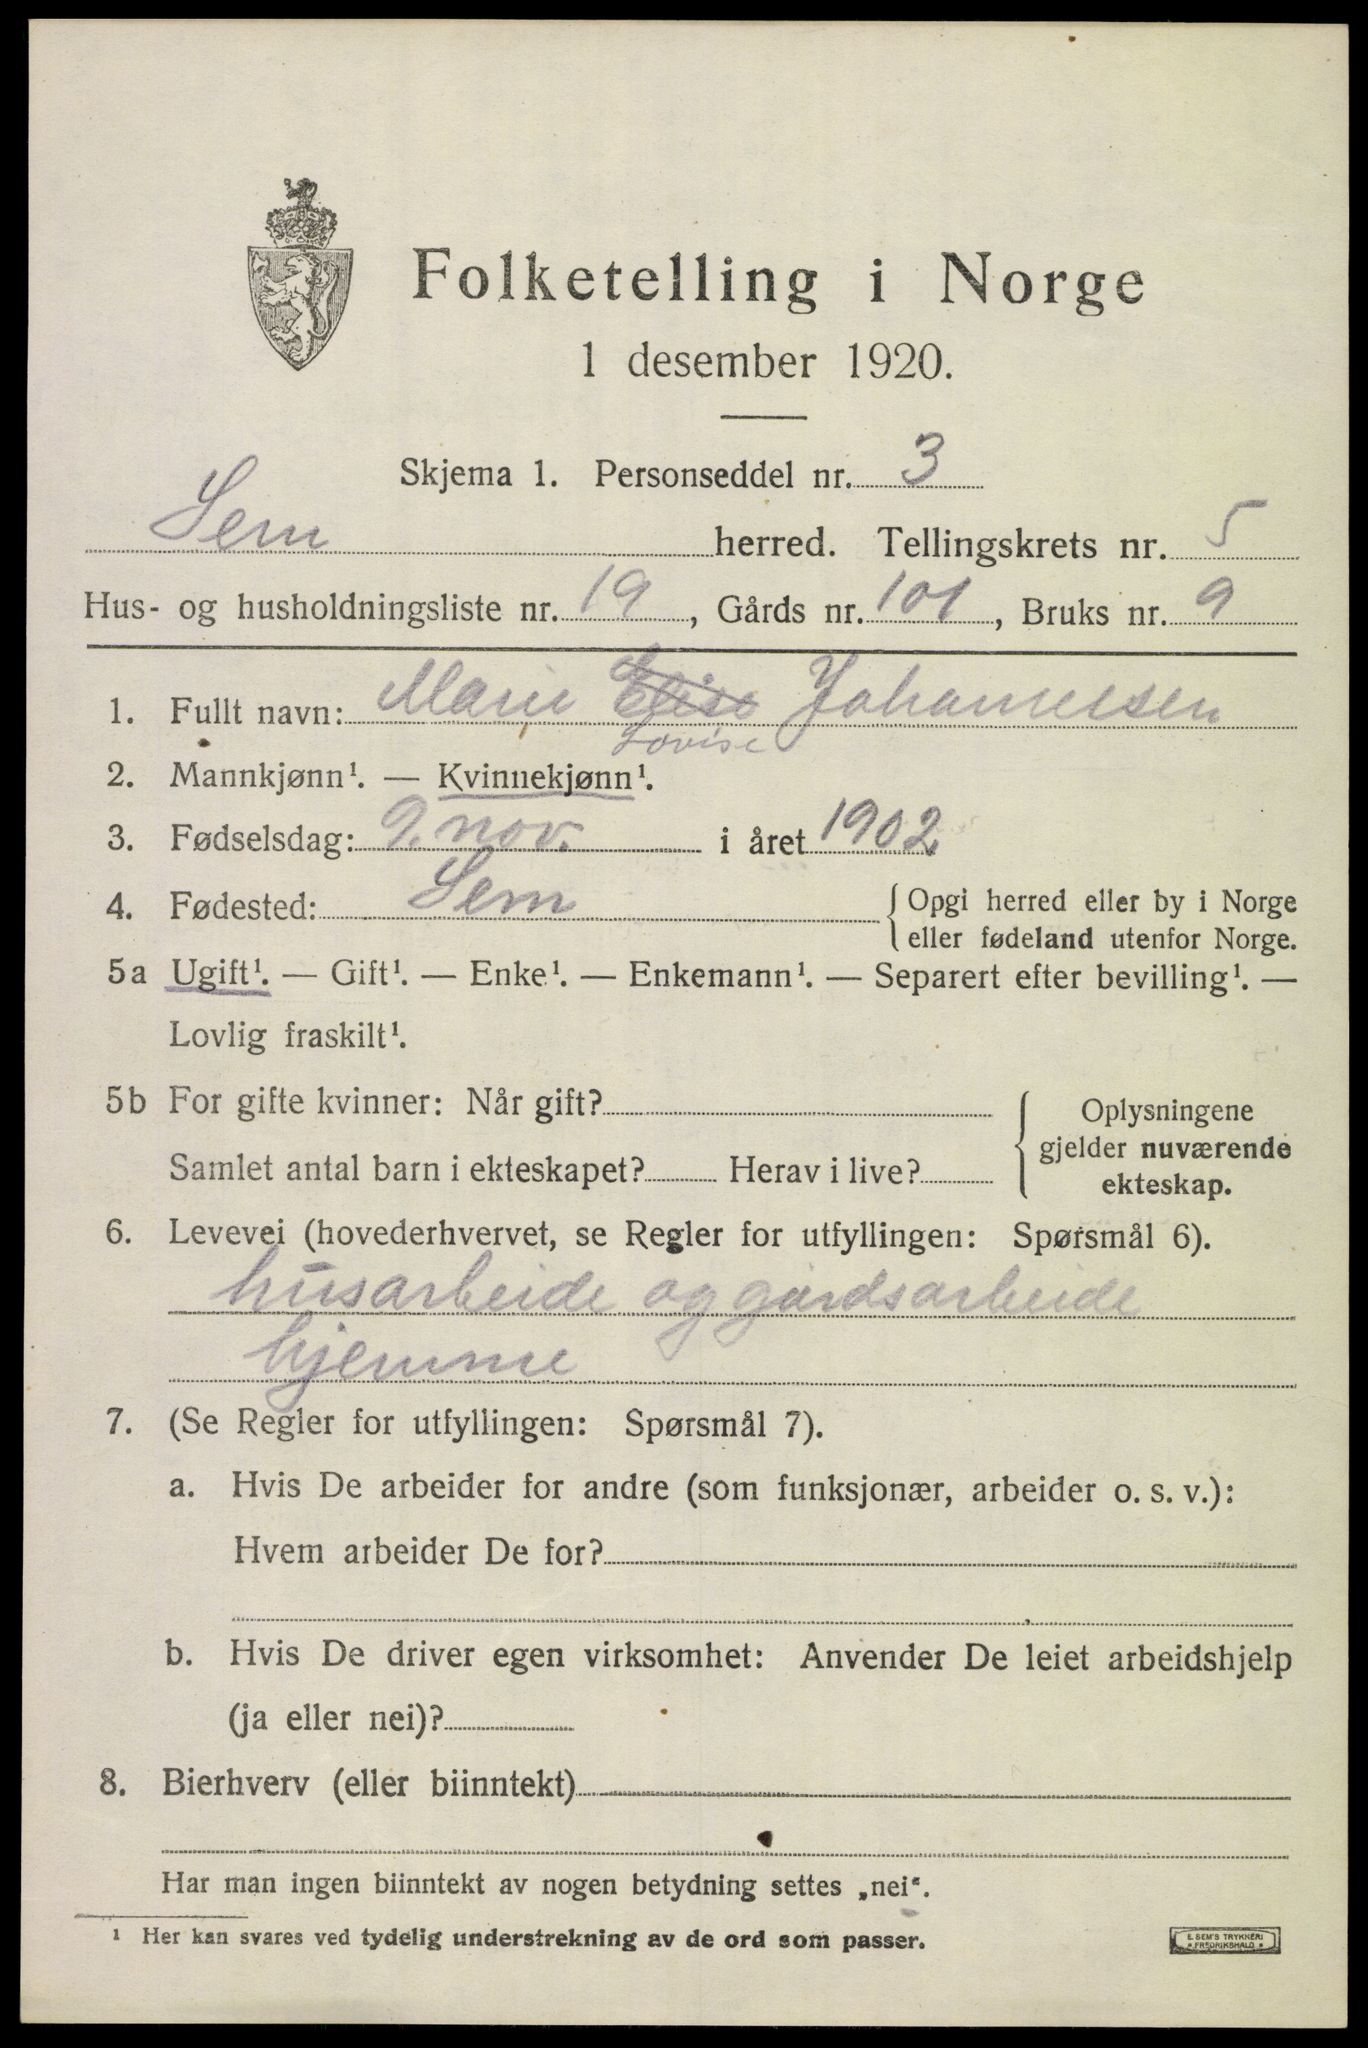 Folketelling i Norge
1 desember 1920.
Skjema 1. Personseddel nr. 3
Sem herred. Tellingskrets nr. 5
Hus- og husholdningsliste nr. 19, Gårds nr. 101, Bruks nr. 9
1. Fullt navn: Marie Elise Johannessen
Lovise
2. Mannkjønn¹. — Kvinnekjønn¹.
3. Fødselsdag: 9. nov. i året 1902
4. Fødested: Sem { Opgi herred eller by i Norge
eller fødeland utenfor Norge.
5a Ugift¹. — Gift¹. — Enke¹. — Enkemann¹. — Separert efter bevilling¹. —
Lovlig fraskilt¹.
5b For gifte kvinner: Når gift? { Oplysningene
gjelder nuværende
Samlet antal barn i ekteskapet? Herav i live? ekteskap.
6. Levevei (hovederhvervet, se Regler for utfyllingen: Spørsmål 6).
husarbeide og gårdsarbeide
hjemme
7. (Se Regler for utfyllingen: Spørsmål 7).
a. Hvis De arbeider for andre (som funksjonær, arbeider o. s. v.):
Hvem arbeider De for?
b. Hvis De driver egen virksomhet: Anvender De leiet arbeidshjelp
(ja eller nei)?
8. Bierhverv (eller biinntekt)
Har man ingen biinntekt av nogen betydning settes „nei“.
¹ Her kan svares ved tydelig understrekning av de ord som passer.
E. SEM'S TRYKKERI
FREDRIKSHALD